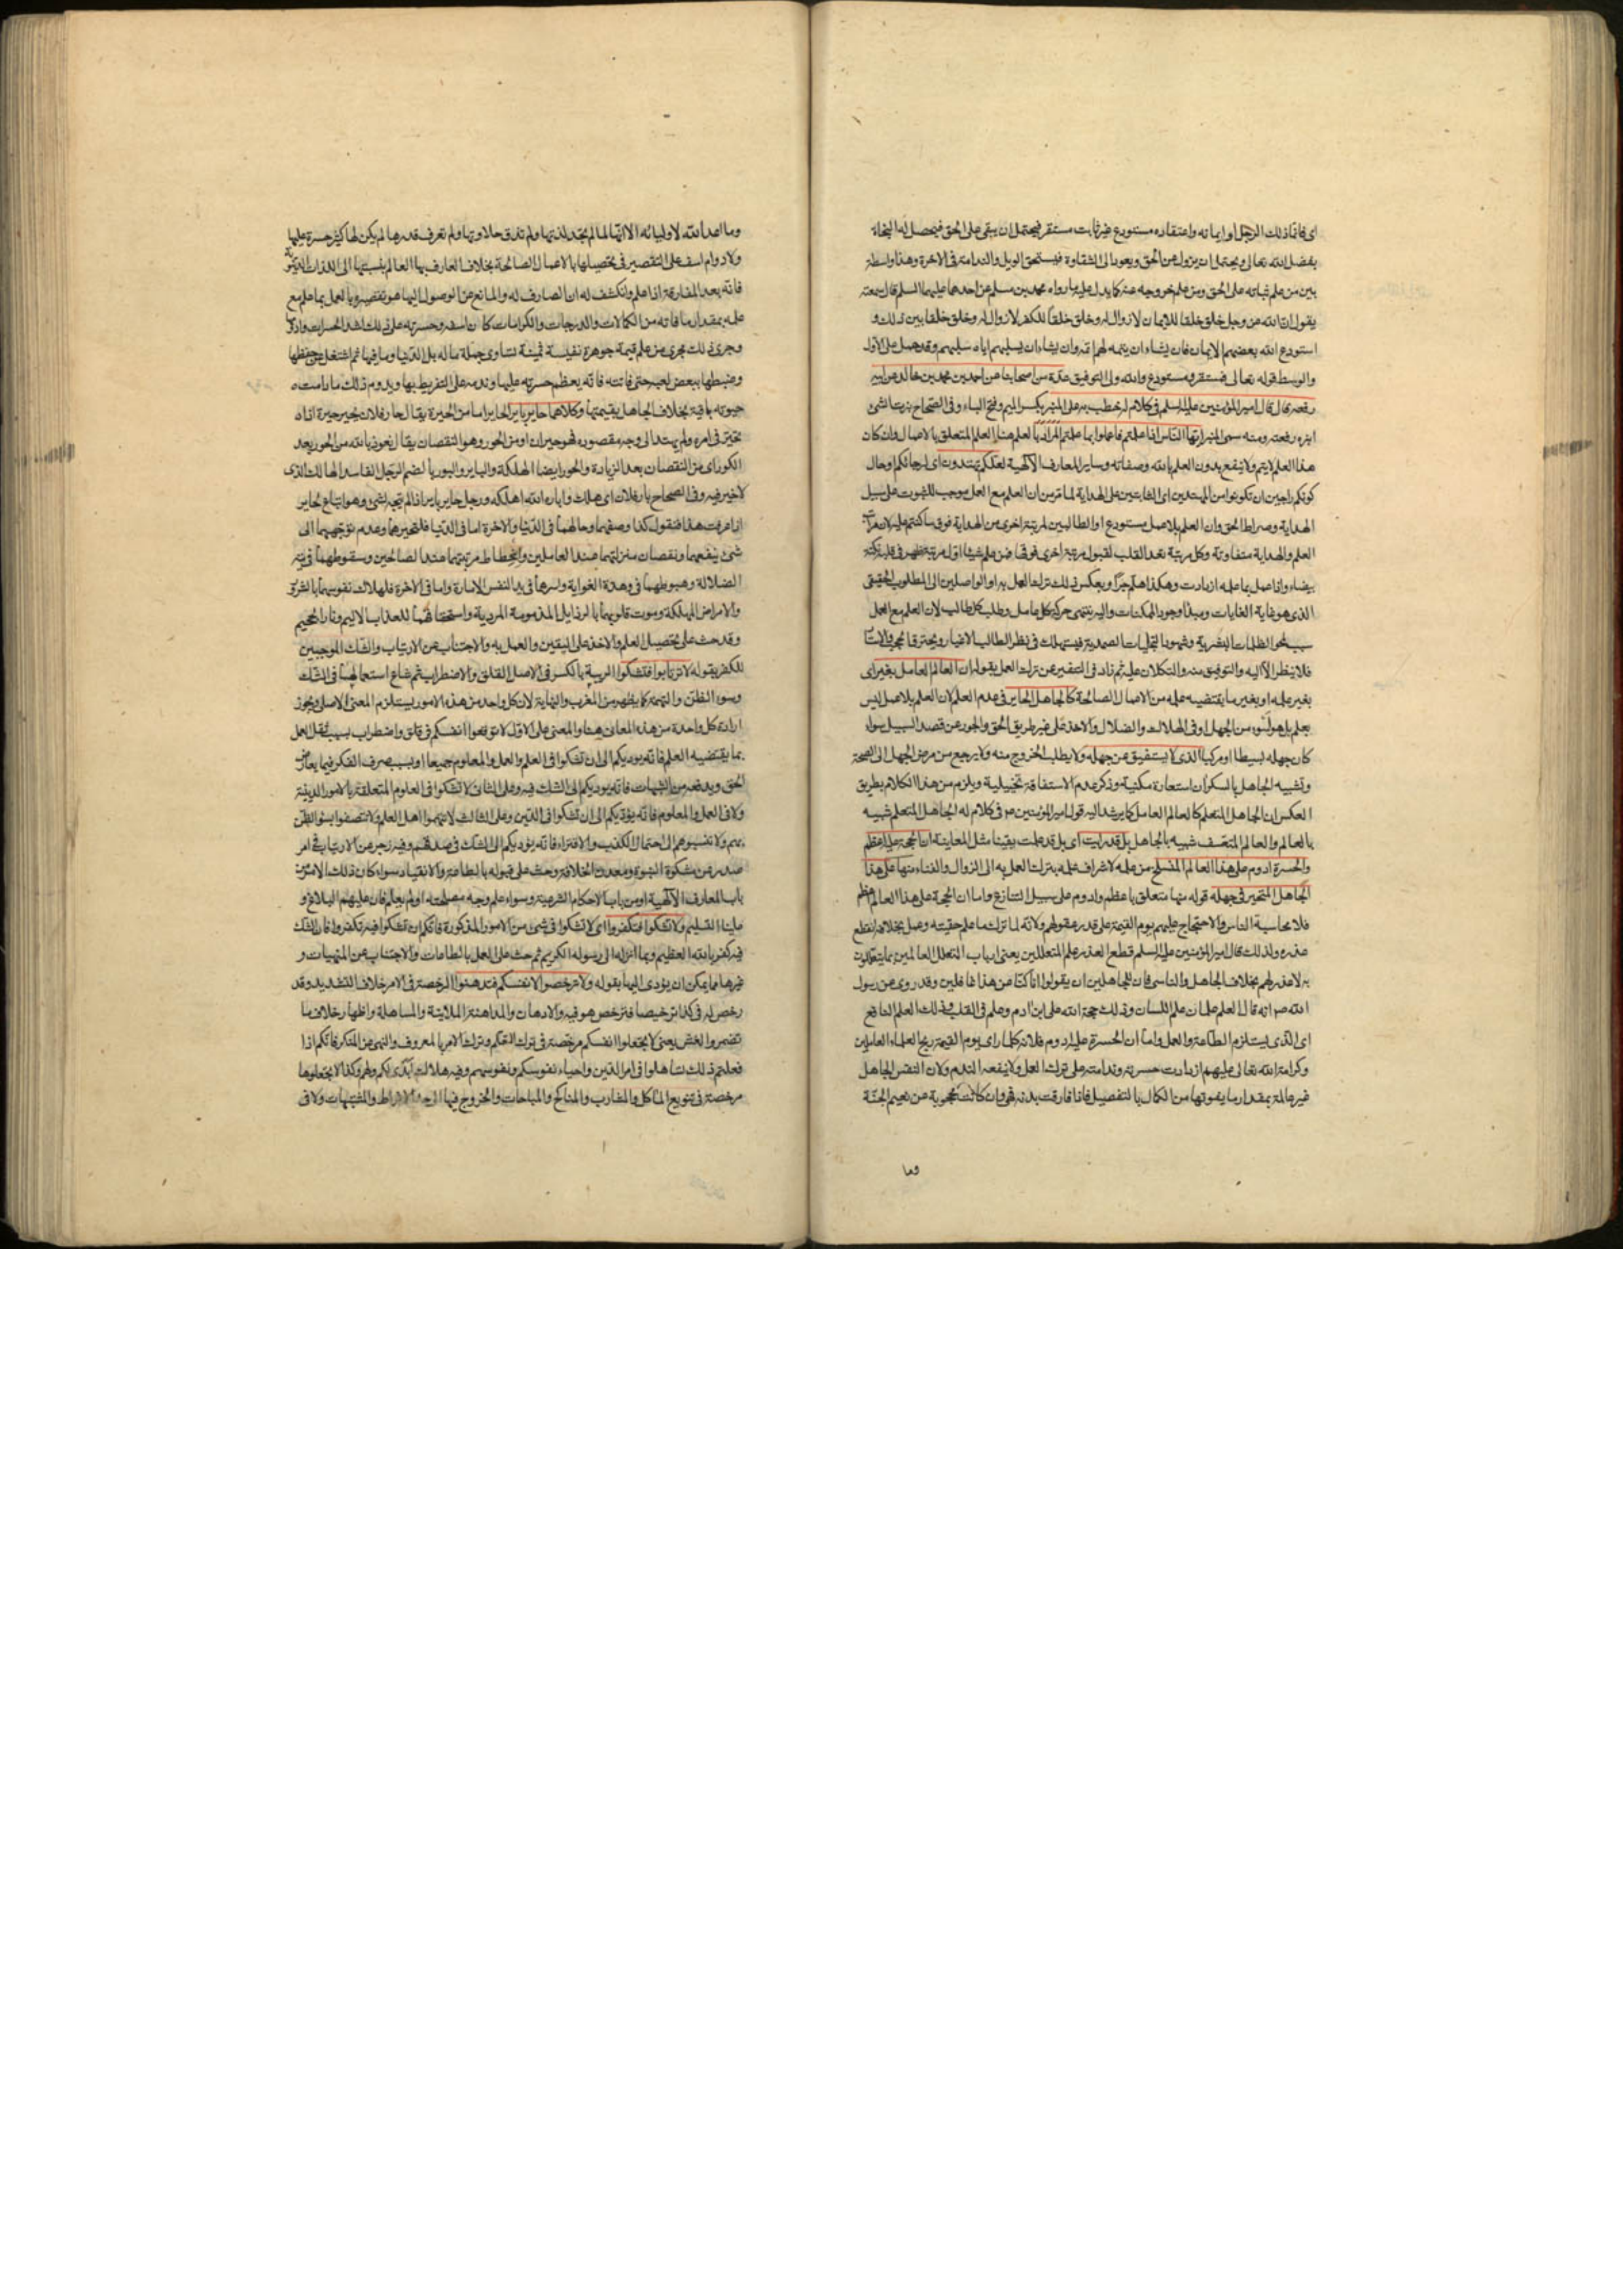 اى فانما ذلك الرجل او ايمانه واعتقاده مستودع غير ثابت مستقر فيحتمل ان يبقى على الحق فيحصل له النجاة
بفضل الله تعالى ويحتمل ان يزول عن الحق ويعود الى الشقاوة فيستحق الويل والندامة فى الاخرة وهذا واسطة
بين من علم ثباته على الحق ومن علم خروجه عنه كما يدل عليه ما رواه محمد بن مسلم عن احدهما عليهما السلم قال سمعته
يقول ان الله عز وجل خلق خلقا للايمان لا زوال له وخلق خلقا للكفر لا زوال له وخلق خلقا بين ذلك و
استودع الله بعضهم الايمان فان يشاء ان يتمه لهم اتمه وان يشاء ان يسلبهم اياه سلبهم وقد حمل على الاول
والوسط قوله تعالى فمستقر ومستودع والله ولى التوفيق عدة من اصحابنا عن احمد بن محمد بن خالد عن ابيه
رفعه قال قال امير المؤمنين عليه السلم فى كلام له خطب به على المنبر بكسر الميم وفتح الباء وفى الصحاح نبرت الشئ
انبره رفعته ومنه سمى المنبر ايها الناس اذا علمتم فاعملوا بما علمتم المراد بالعلم هنا العلم المتعلق بالاعمال وان كان
هذا العلم لا يتم ولا ينفع بدون العلم بالله وصفاته وساير المعارف الالهية لعلكم تهتدون اى لرجائكم او حال
كونكم راجين ان تكونوا من المهتدين اى الثابتين على الهداية لما مر من ان العلم مع العمل موجب للثبوت على سبيل
الهداية وصراط الحق وان العلم بلا عمل مستودع او الطالبين لمرتبة اخرى من الهداية فوق ما كنتم عليه لان مراتب
العلم والهداية متفاوتة وكل مرتبة تعد القلب لقبول مرتبة اخرى فوقها فمن علم شيئا اول مرتبة ظهر فى قلبه نكتة
بيضاء واذا عمل بما علمه ازدادت وهكذا هلم جرا وبعكس ذلك ترك العمل به او الواصلين الى المطلوب الحقيقى
الذى هو غاية الغايات ومبدأ وجود الممكنات واليه ينتهى حركة كل عامل وطلب كل طالب لان العلم مع العمل
سبب لمحو الظلمات البشرية وشهود التجليات الصمدية فيستهلك فى نظر الطالب الاغيار ويحترق
فلا ينظر الا اليه والتوفيق منه والتكلان عليه ثم زاد فى التنفير عن ترك العمل بقوله ان العالم العامل بغيره اى
بغير علمه او بغير ما يقتضيه علمه من الاعمال الصالحة كالجاهل الحاير فى عدم العلم لان العلم بلا عمل ليس
بعلم بل هو اسوء من الجهل او فى الهلاك والضلال والاخذ على غير طريق الحق والجور عن قصد السبيل سواء
كان جهله بسيطا او مركبا الذى لا يستفيق عن جهله ولا يطلب الخروج منه ولا يرجع من مرض الجهل الى الصحة
وتشبيه الجاهل بالسكران استعارة مكنية وذكر عدم الاستفاقة تخييلية ويلزم من هذا الكلام بطريق
العكس ان الجاهل المتعلم كالعالم العامل كما يرشد اليه قول امير المؤمنين ع فى كلام له الجاهل المتعلم شبيه
بالعالم والعالم المتعسف شبيه بالجاهل بل قد رايت اى بل قد علمت يقينا مثل المعاينة ان الحجة عليه اعظم
والحسرة ادوم على هذا العالم المنسلخ من علمه لاشراف علمه بترك العمل به الى الزوال والفناء منها على هذا
الجاهل المتحير فى جهله قوله منها متعلق باعظم وادوم على سبيل التنازع واما ان الحجة على هذا العالم اعظم
فلان محاسبة الناس والاحتجاج عليهم يوم القيمة على قدر عقولهم ولانه لما ترك ما علم حقيته وعمل بخلافه انقطع
عذره ولذلك قال امير المؤمنين عليه السلم قطع العذر علم المتعللين يعنى
به لا عذر لهم بخلاف الجاهل والناسى فان للجاهلين ان يقولوا انا كنا عن هذا غافلين وقد روى عن رسول
الله ص انه قال العلم علمان علم اللسان وذلك حجة الله على ابن ادم وعلم فى القلب فذلك العلم النافع
اى الذى يستلزم الطاعة والعمل واما ان الحسرة عليه ادوم فلانه كلما راى يوم القيمة ريح العلماء العاملين
وكرامة الله تعالى عليهم ازدادت حسرته وندامته على ترك العمل ولا ينفعه الندم ولان النفس الجاهل
غير عالمة بمقدار ما يفوتها من الكمال بالتفصيل فاذا فارقت بدنه فهى وان كانت محجوبة عن نعيم الجنة
وما
وما اعد الله لاوليائه الا انها لما لم تجد لذتها ولم تذق حلاوتها ولم تعرف قدرها لم يكن لها كثير حسرة عليها
ولا دوام اسف على التقصير فى تحصيلها بالاعمال الصالحة بخلاف العارف بها العالم بنسبتها الى اللذات الدنيوية
فانه بعد المفارقة اذا علم وانكشف له ان الصارف له والمانع عن الوصول اليها هو تقصيره بالعمل بما علم مع
علمه بمقدار ما فاته من الكمالات والدرجات والكرامات كان اسفه وحسرته على ذلك اشد الحسرات وادومها
وجرى ذلك مجرى من علم قيمة جوهرة نفيسة ثمينة تساوى جملة ماله بل الدنيا وما فيها ثم اشتغل عن حفظها
وضبطها ببعض لعبه حتى فاتته فانه يعظم حسرته عليها وندمه على التفريط بها ويدوم ذلك ما دامت
حيوته باقية بخلاف الجاهل بقيمتها وكلاهما حاير باير الحاير اما من الحيرة يقال حار فلان يحير حيرة اذا
تحير فى امره ولم يهتد الى وجه مقصوده فهو حيران او من الحور وهو النقصان يقال نعوذ بالله من الحور بعد
الكور اى من النقصان بعد الزيادة والحور ايضا الهلكة والباير والبور بالضم الرجل الفاسد الهالك الذى
لا خير فيه وفى الصحاح بار فلان اى هلك واباره الله اهلكه ورجل حاير باير اذا لم يتجه لشئ وهو اتباع لحاير
اذا عرفت هذا فنقول كذا وصفهما وحالهما فى الدنيا والاخرة اما فى الدنيا فلتحيرهما وعدم توجههما الى
شئ ينفعهما ونقصان منزلتهما عند العاملين وانحطاط مرتبتهما عند الصالحين وسقوطهما فى تيه
الضلالة وهبوطهما فى وهدة الغواية واسرهما فى يد النفس الامارة واما فى الاخرة فلهلاك نفوسهما بالشرور
والامراض المهلكة وموت قلوبهما بالرذايل المذمومة المردية واستحقاقهما للعذاب الاليم ونار الجحيم
وقد حث على تحصيل العلم والاخذ على اليقين والعمل به والاجتناب عن الارتياب والشك الموجبين
للكفر بقوله لا ترتابوا فتشكوا الريبة بالكسر فى الاصل القلق والاضطراب ثم شاع استعمالها فى الشك
وسوء الظن والتهمة كما يظهر من المغرب والنهاية لان كل واحد من هذه الامور يستلزم المعنى الاصلى ويجوز
ارادة كل واحدة من هذه المعانى هنا والمعنى على الاول لا توقعوا انفسكم فى قلق واضطراب بسبب ثقل العمل
بما يقتضيه العلم فانه يوديكم الى ان تشكوا فى العلم والعمل والمعلوم جميعا او بسبب صرف الفكر فيما يعارض
الحق ويدفعه من الشبهات فانه يوديكم الى الشك فيه وعلى الثانى لا تشكوا فى العلوم المتعلقة بالامور الدينية
ولا فى العمل والمعلوم فانه يؤديكم الى ان تشكوا فى الدين وعلى الثالث لا تتهموا اهل العلم ولا تتصفوا بسوء الظن
بهم ولا تنسبوهم الى احتمال الكذب والافتراء فانه يوديكم الى الشك فى صدقهم وفيه زجر عن الارتياب فى امر
صدر عن مشكوة النبوة ومعدن الخلافة وحث على قبوله بالطاعة والانقياد سواء كان ذلك الامر من
باب المعارف الالهية او من باب الاحكام الشرعية وسواء علم وجه مصلحته او لم يعلم فان عليهم البلاغ و
علينا التسليم ولا تشكوا فتكفروا اى لا تشكوا فى شئ من الامور المذكورة فانكم ان تشكوا فيه تكفروا فان الشك
فيه كفر بالله العظيم وبما انزله الى رسوله الكريم ثم حث على العمل بالطاعات والاجتناب عن المنهيات و
غيرها مما يمكن ان يؤدى اليها بقوله ولا ترخصوا لانفسكم فتدهنوا الرخصة فى الامر خلاف التشديد وقد
رخص له فى كذا ترخيصا فترخص هو فيه والادهان والمداهنة الملاينة والمساهلة واظهار خلاف ما
تضمر والغش يعنى لا تجعلوا انفسكم مرخصة فى ترك التعلم وترك الامر بالمعروف والنهى عن المنكر فانكم اذا
فعلتم ذلك تساهلوا فى امر الدين واحياء نفوسكم ونفوسهم وفيه هلاك ابدى لكم ولهم وكذا لا تجعلوها
مرخصة فى تنويع المآكل والمشارب والمناكح والمباحات والخروج فيها الى حد الافراط والمشتبهات ولا فى